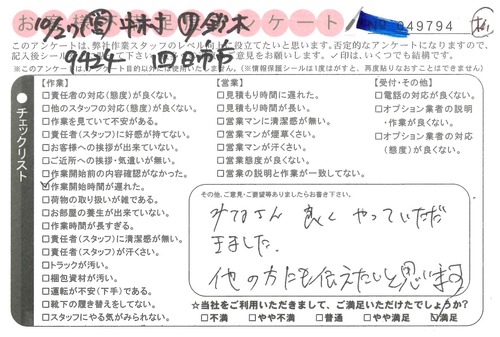 お客様満足度アンケート
№ 049794
10/27 鈴木
9424 四日市市
このアンケートは、弊社作業スタッフのレベル向上に役立てたいと思います。否定的なアンケートになりますので、
※(このアンケートは、アンケート目的以外には使用いたしません。)(※情報保護シールは1度がすと、再度貼りなおすことはできません)
チェックリスト
【作業】
□責任者の対応(態度)が良くない。
□他のスタッフの対応(態度)が良くない。
□作業を見ていて不安がある。
□責任者(スタッフ)に好感が持てない。
□お客様への挨拶が出来ていない。
□ご近所への挨拶・気遣いが無い。
□作業開始前の内容確認がなかった。
☑作業開始時間が遅れた。
□荷物の取り扱いが雑である。
□お部屋の養生が出来ていない。
□作業時間が長すぎる。
□責任者(スタッフ)に清潔感が無い。
□責任者(スタッフ)が汗くさい。
□トラックが汚い。
□梱包資材が汚い。
□運転が不安(下手)である。
□靴下の履き替えをしてない。
□スタッフにやる気がみられない。
【営業】
□見積もり時間に遅れた。
□見積もり時間が長い。
□営業マンに清潔感が無い。
□営業マンが煙草くさい。
□営業マンが汗くさい。
□営業態度が良くない。
□営業の説明と作業が一致してない。
【受付・その他】
□電話の対応が良くない。
□オプション業者の説明
・作業が良くない。
□オプション業者の対応
(態度)が良くない。
その他、ご意見・ご要望等ありましたらお書き下さい。
みなさん 良く やっていただ
きました。
他の方にも伝えたいと思います
☆当社をご利用いただきまして、ご満足いただけたでしょうか?
□不満 □やや不満 □普通 □やや満足 ☑満足